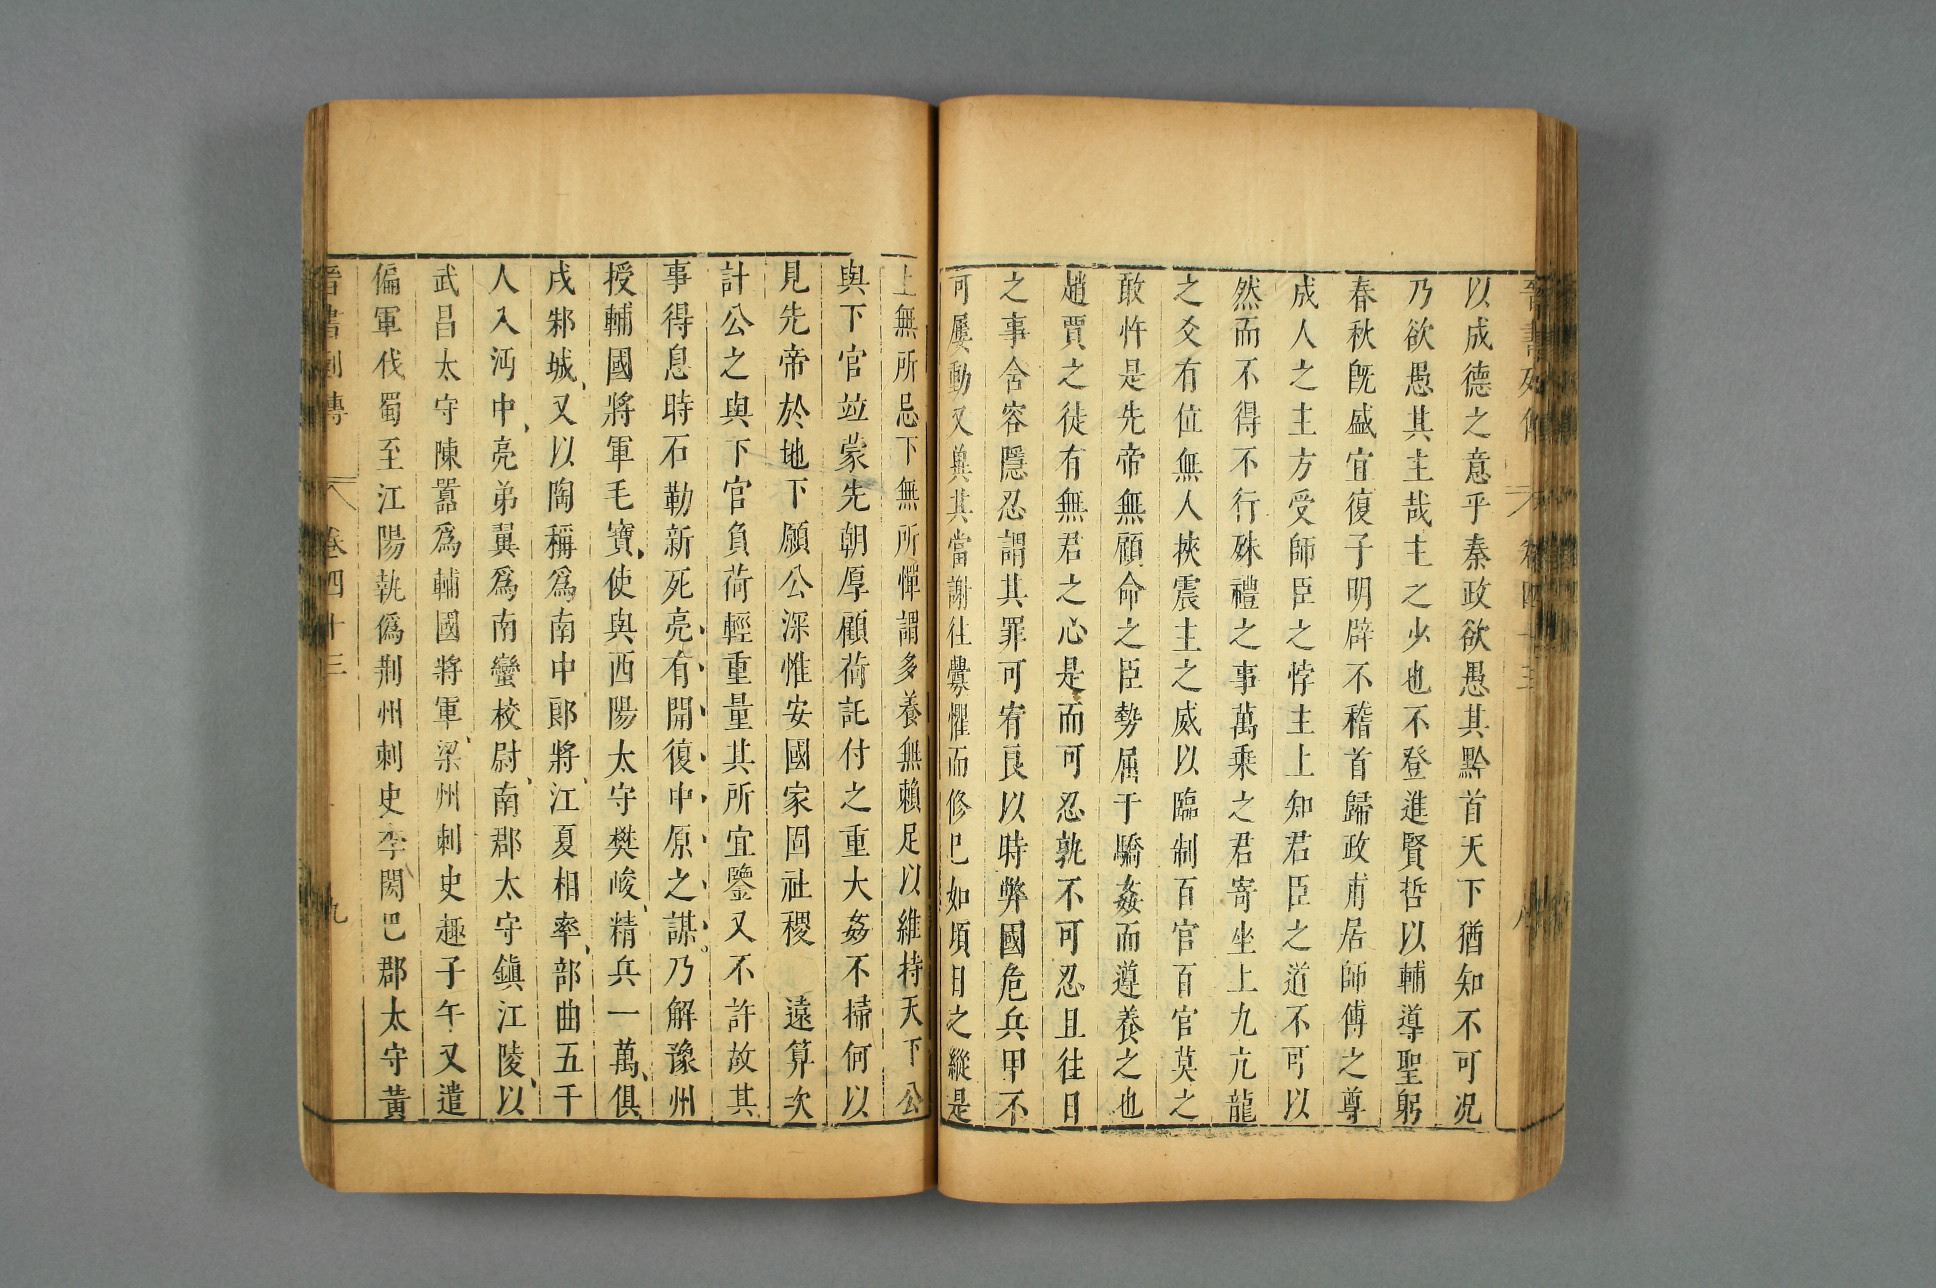 晉書列傳 卷四十三 八
以成德之意乎秦政欲愚其黔首天下猶知不可况
乃欲愚其主哉主之少也不登進賢哲以輔導聖躬
春秋旣盛宜復子明辟不稽首歸政甫居師傅之尊
成人之主方受師臣之悖主上知君臣之道不可以
然而不得不行殊禮之事萬乘之君寄坐上九亢龍
之爻有位無人挾震主之威以臨制百官百官莫之
敢忤是先帝無顧命之臣勢屈于驕姦而遵養之也
趙賈之徒有無君之心是而可忍孰不可忍且往日
之事含容隱忍謂其罪可宥良以時弊國危兵甲不
可屢動又兾其當謝往釁懼而修已如頃日之縱是
上無所忌下無所憚謂多養無賴足以維持天下公
與下官竝蒙先朝厚顧荷託付之重大姦不掃何以
見先帝於地下願公深惟安國家固社稷遠算次
計公之與下官負荷輕重量其所宜鑒又不許故其
事得息時石勒新死亮有開復中原之謀乃解豫州
授輔國將軍毛寶使與西陽太守樊峻精兵一萬俱
戌邾城又以陶稱爲南中郎將江夏相率部曲五千
人入沔中亮弟翼爲南蠻校尉南郡太守鎮江陵以
武昌太守陳囂爲輔國將軍梁州刺史趣子午又遣
偏軍伐蜀至江陽執僞荆州刺史李閎巴郡太守黃
晉書列傳 卷四十三 九